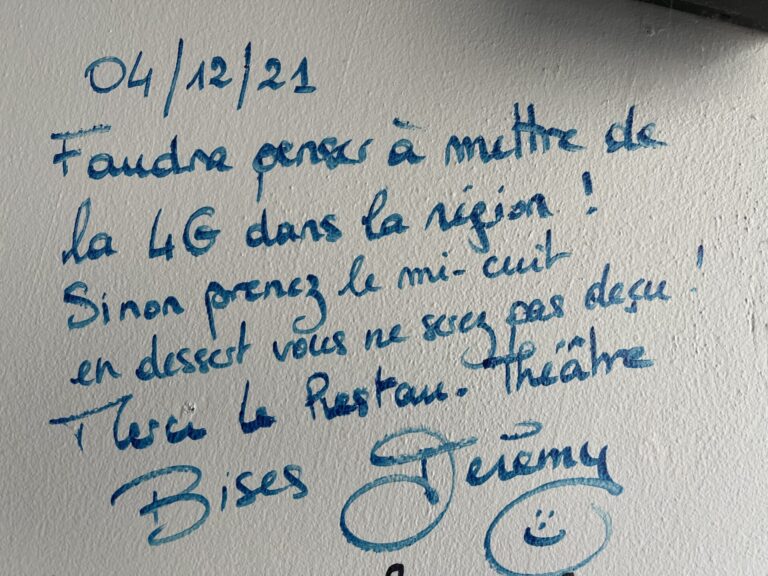 04/12/21
Faudra penser à mettre de
la 4G dans la région !
Sinon prenez le mi-cuit
en dessert vous ne serez pas deçu !
Merci le Restau. Théâtre
Bises Jérémy